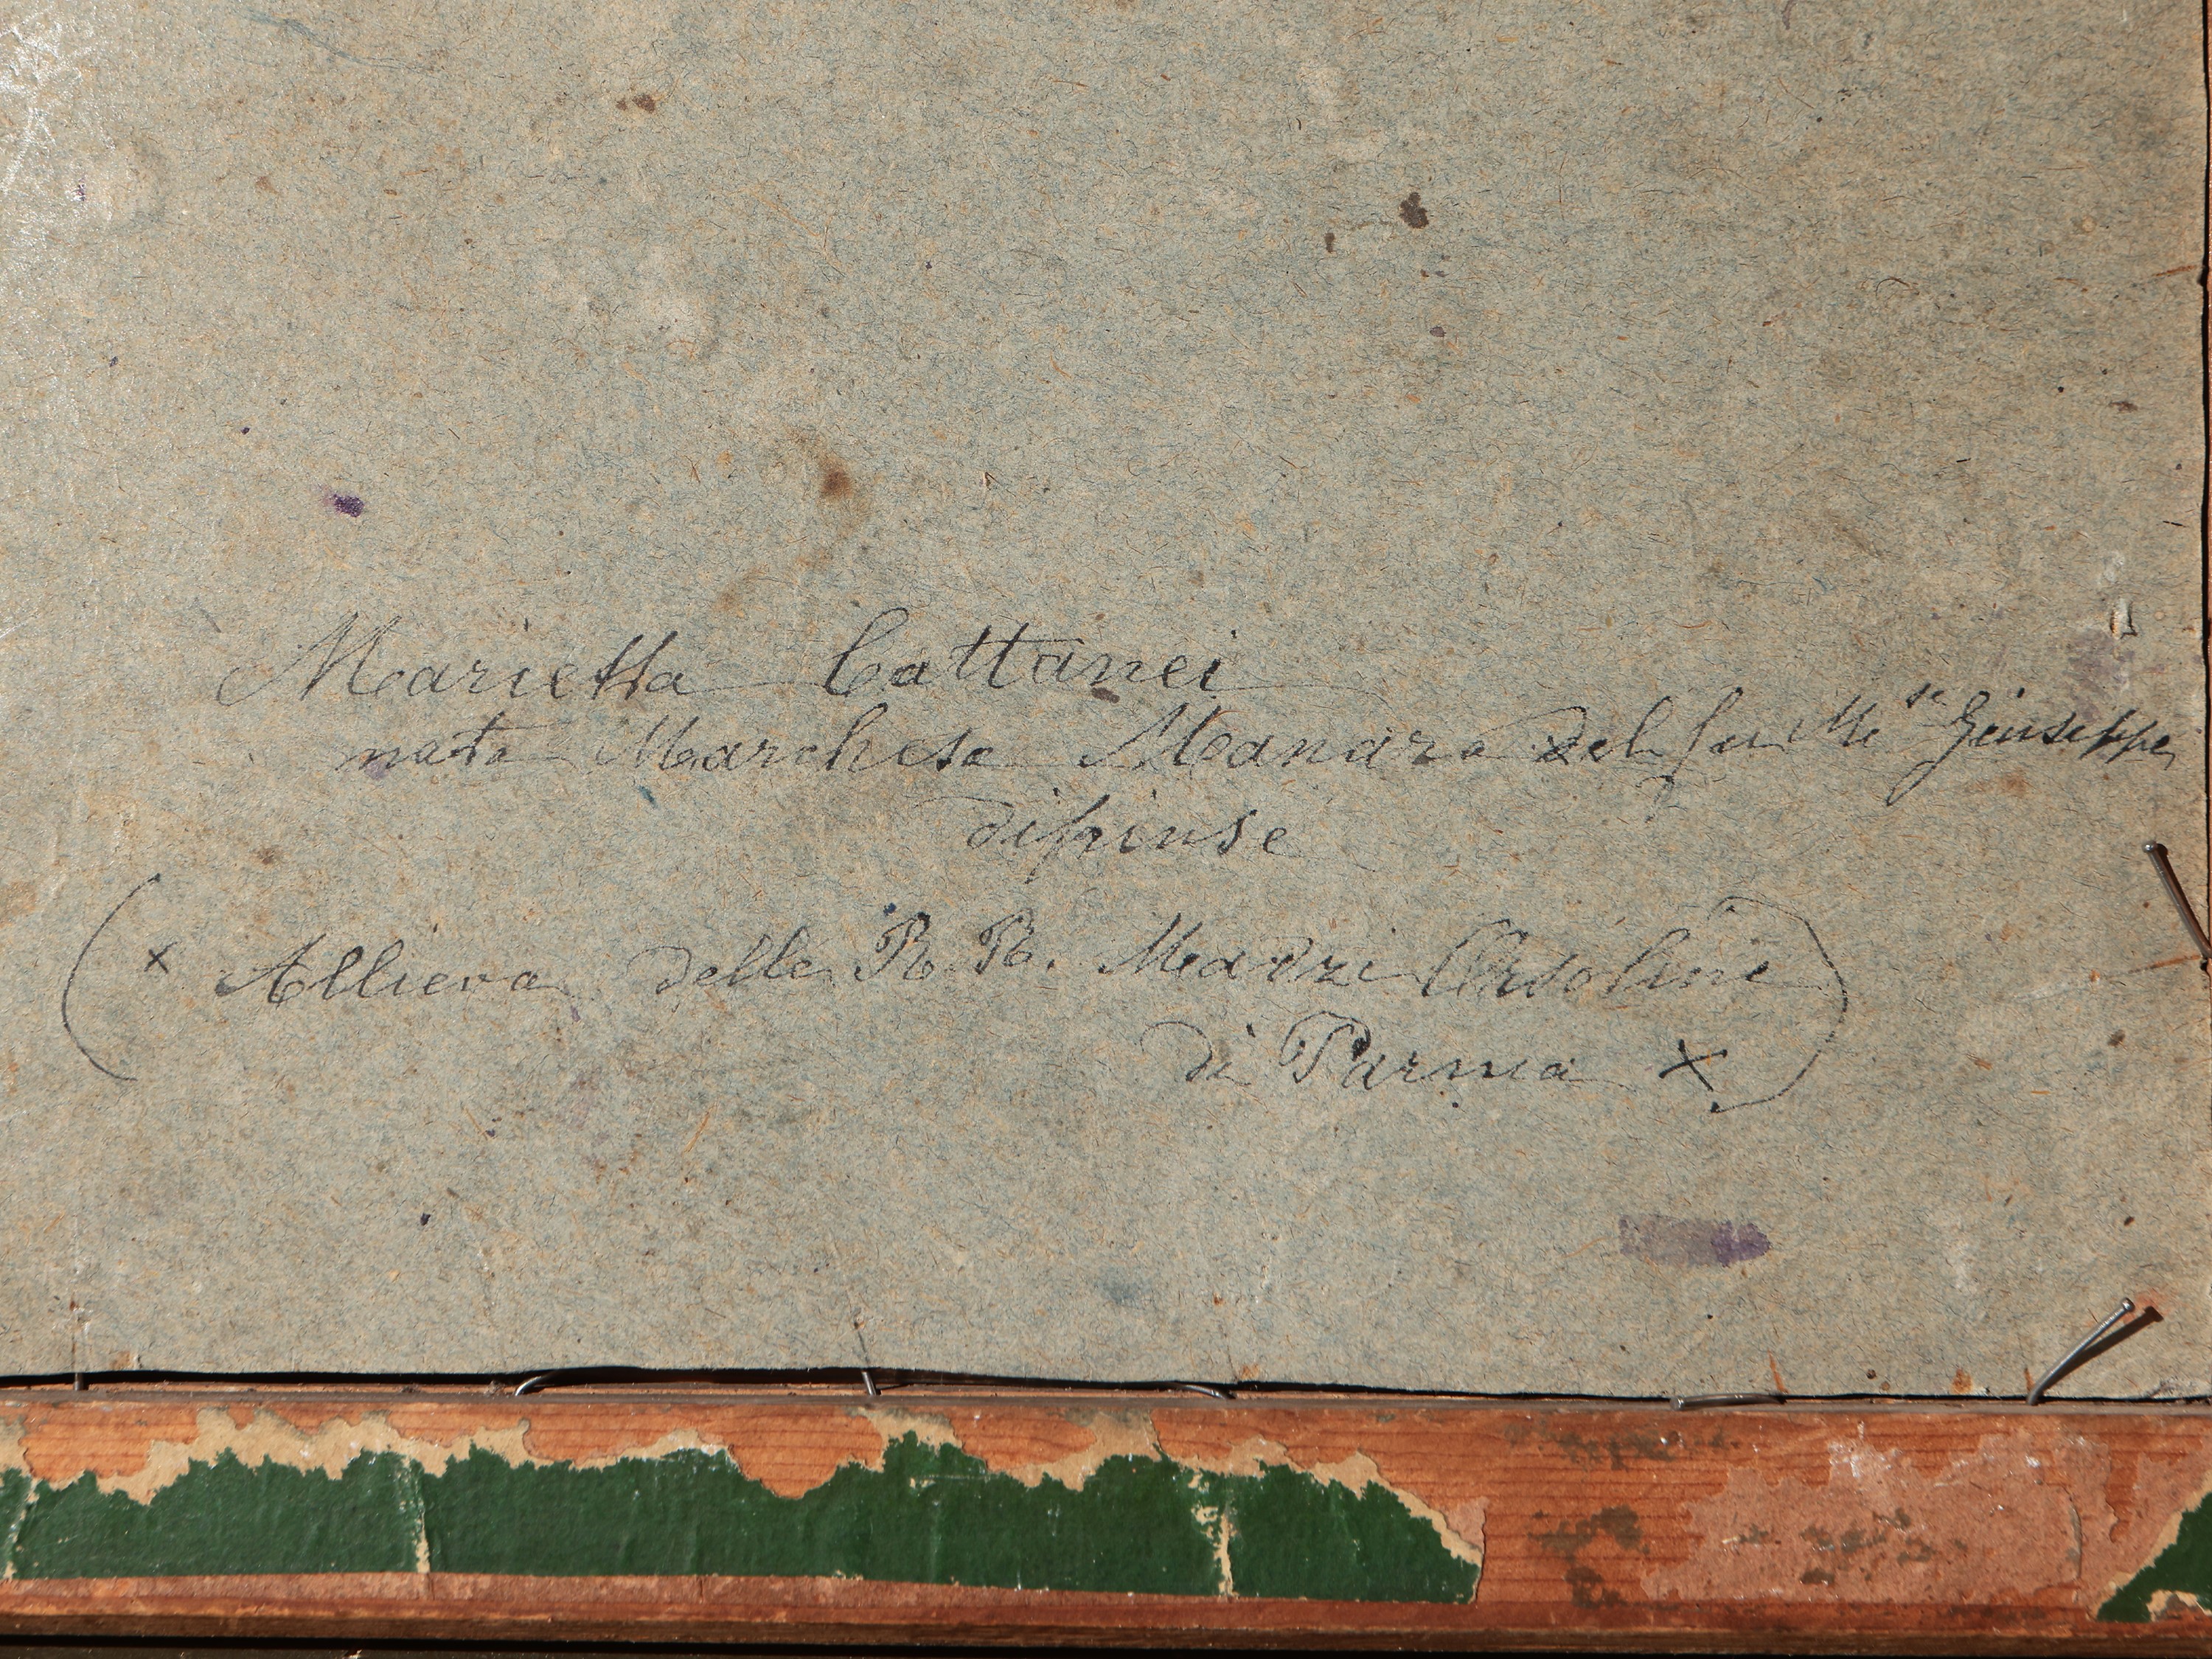 Marietta Cattanei
nata Marchesa Manara del fu M.se Giuseppe
dipinse
(x Allieva delle R. R. Madri Orsoline
di Parma x)